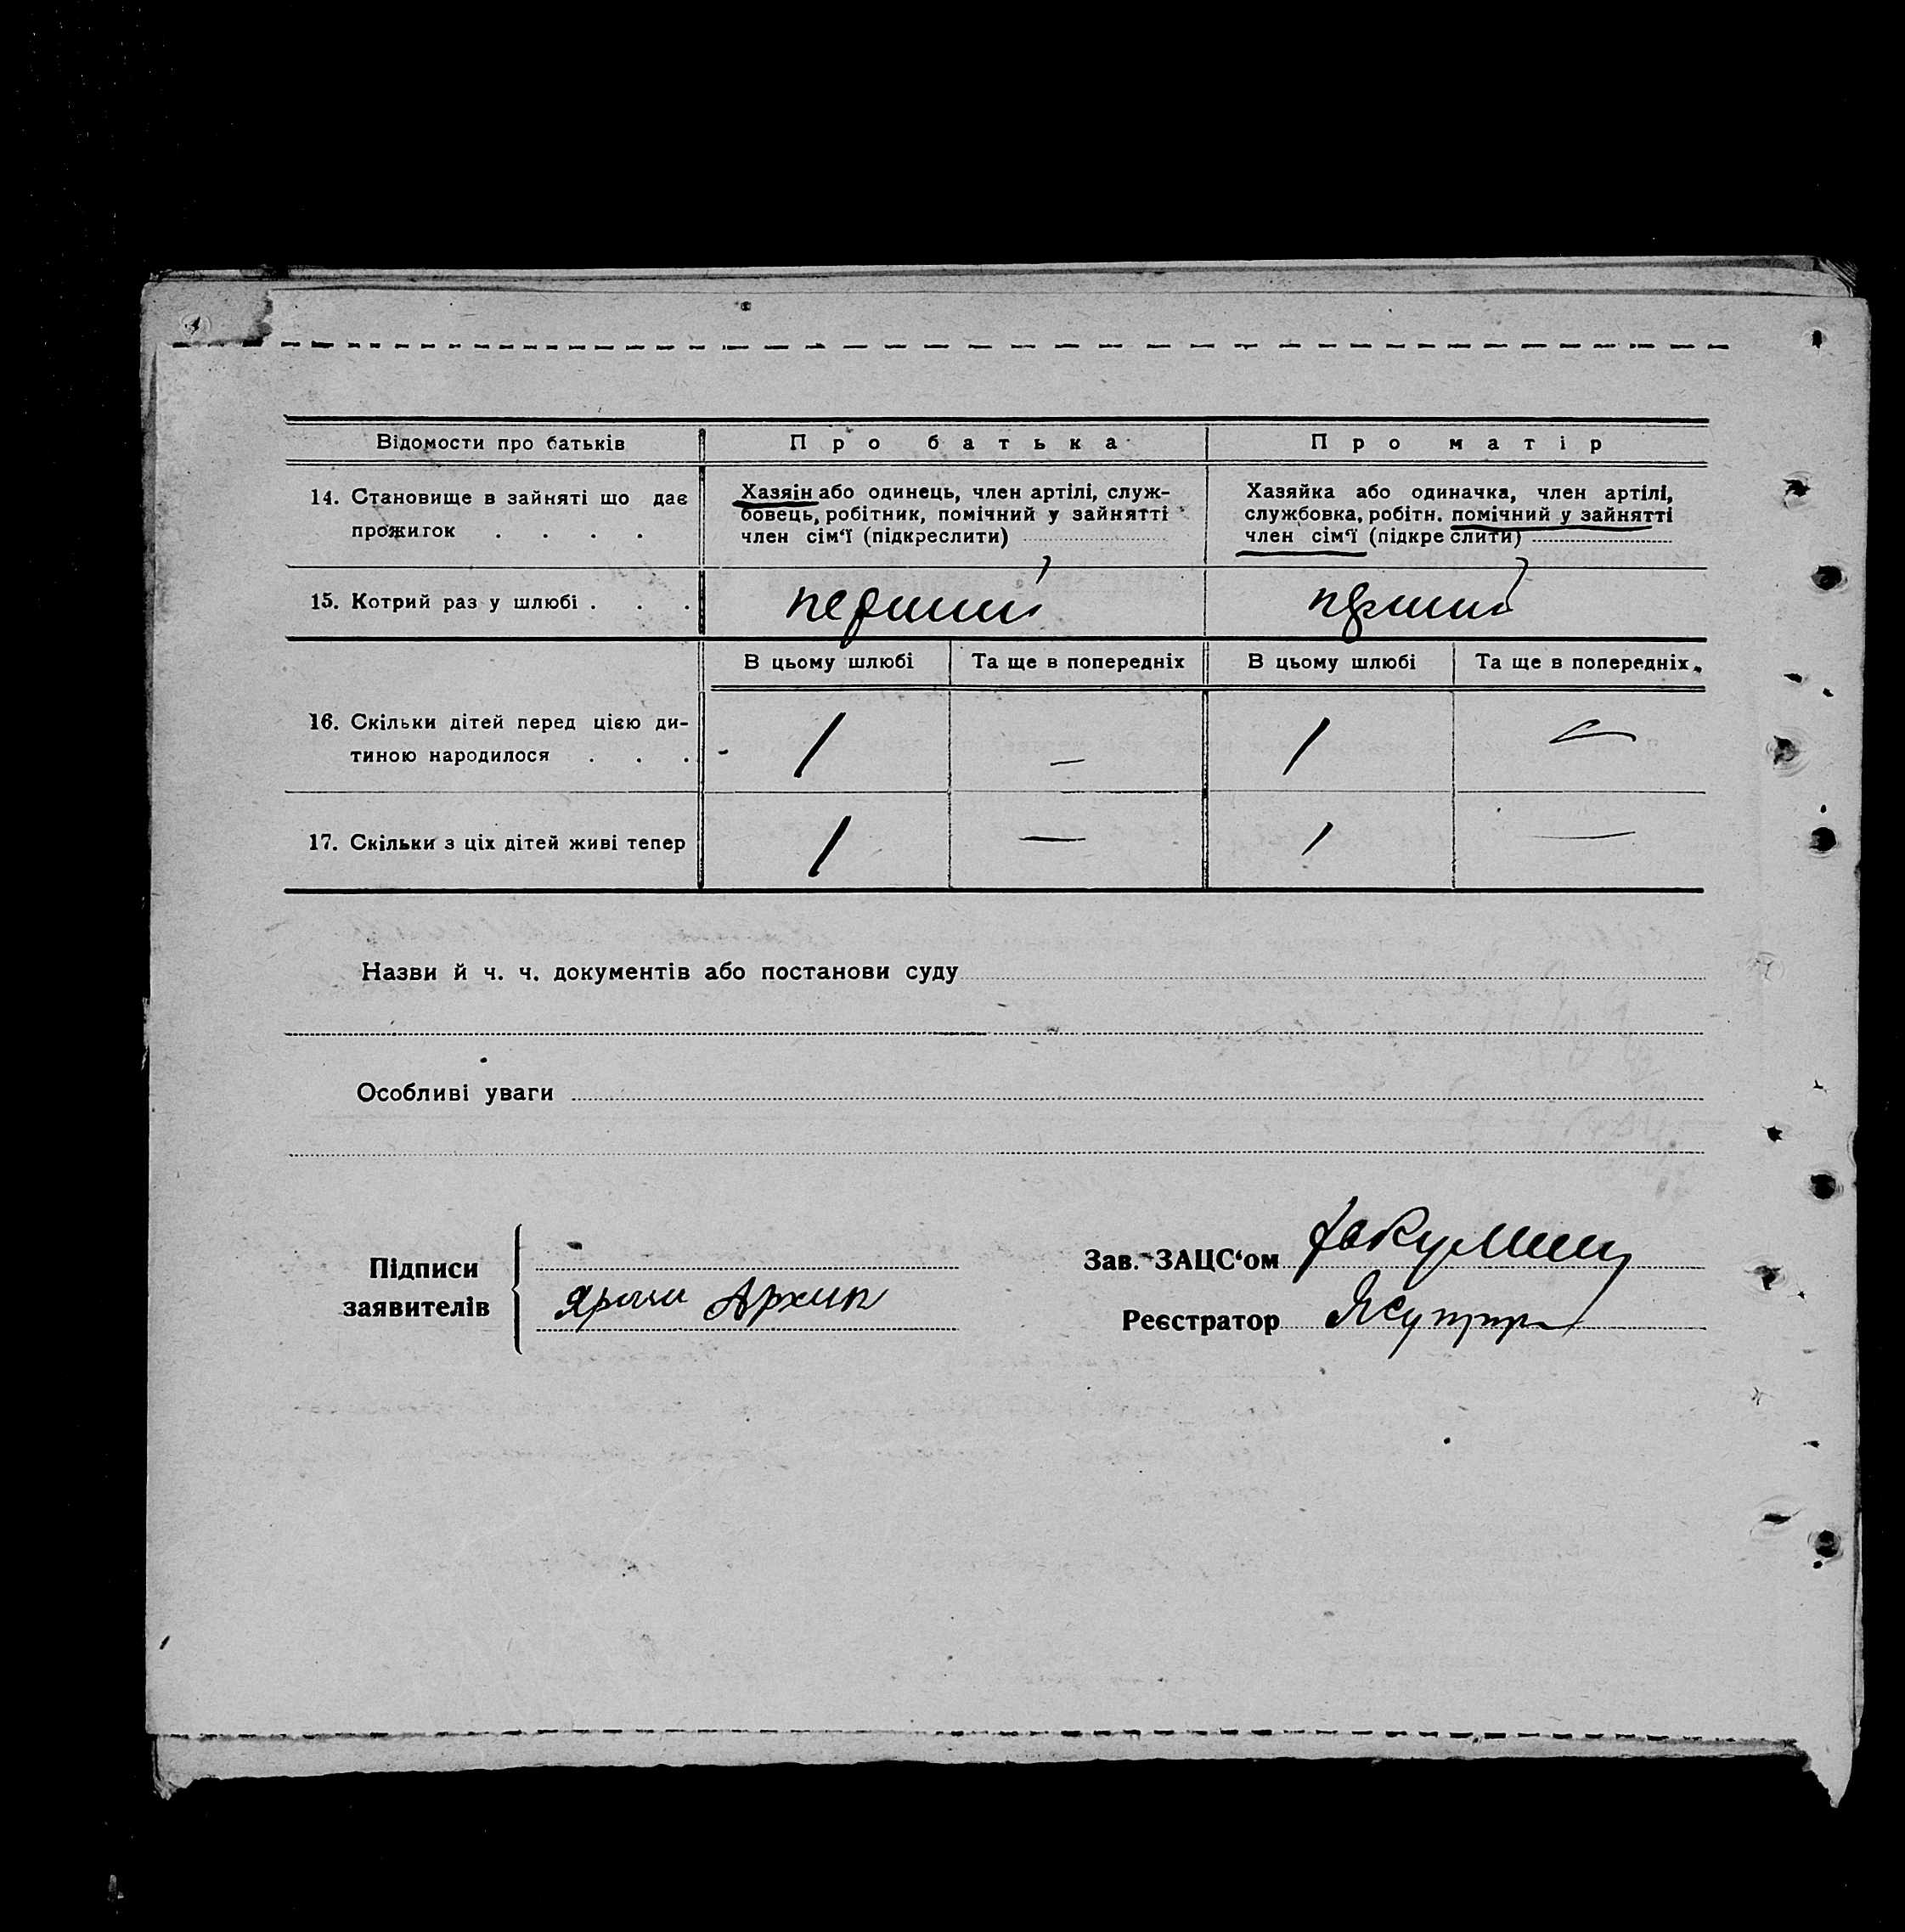 Відомости про батьків
Про батька
Про матір
14. Становище в зайняті що дає
прожиток . . . .
Хазяїн або одинець, член артілі, служ-
бовець, робітник, помічний у зайнятті
член сім‘ї (підкреслити)
Хазяйка або одиначка, член артілі,
службовка, робітн. помічний у зайнятті
член сім‘ї (підкреслити)
15. Котрий раз у шлюбі . . .
перший
перший
В цьому шлюбі
Та ще в попередніх
В цьому шлюбі
Та ще в попередніх
16. Скільки дітей перед цією ди-
тиною народилося . . .
1
—
1
—
17. Скільки з ціх дітей живі тепер
1
—
1
—
Назви й ч. ч. документів або постанови суду
Особливі уваги
Підписи
заявителів
Архип
Зав. ЗАЦС‘ом
Реєстратор